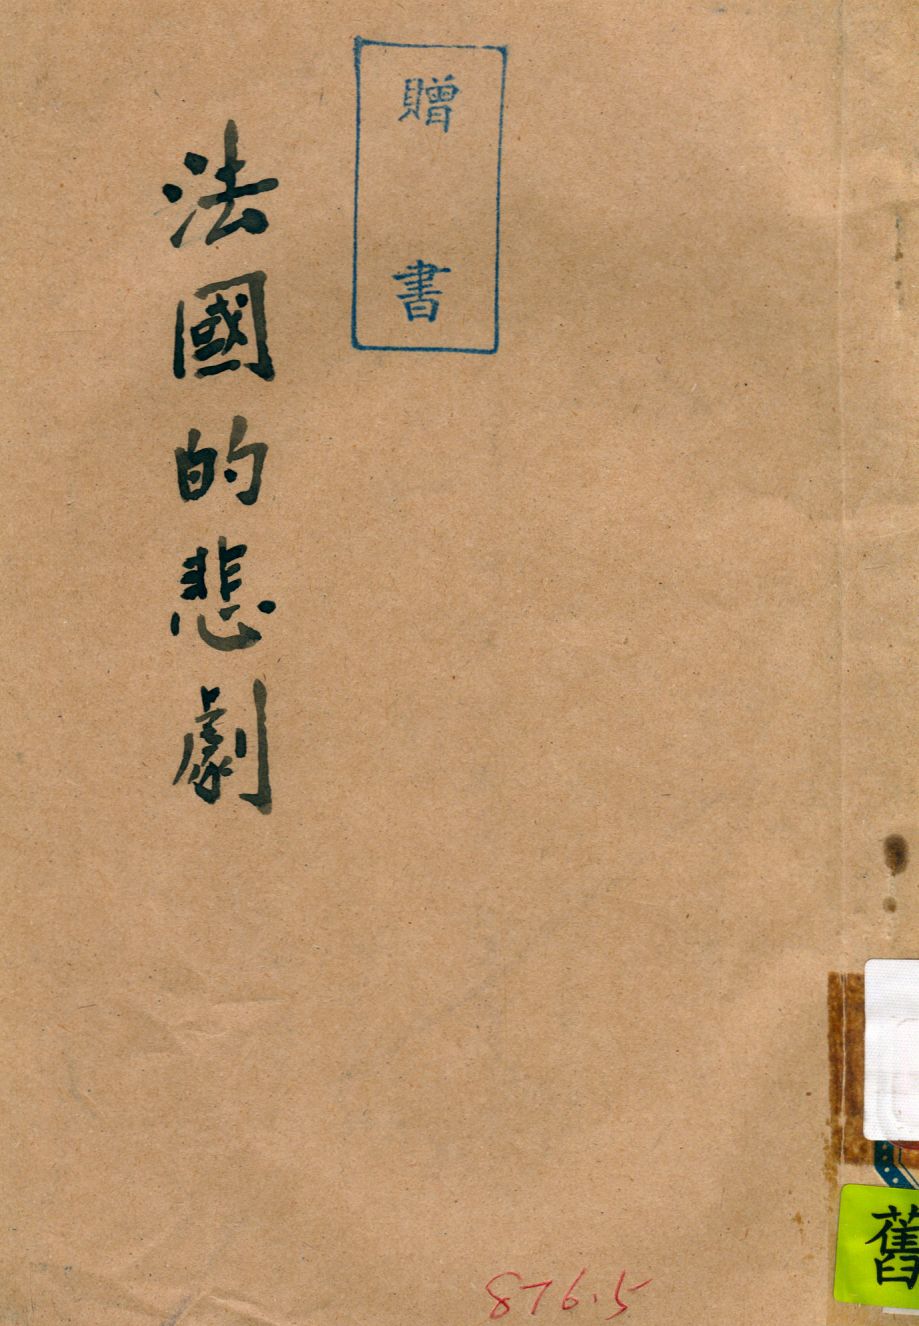 贈書
法國的悲劇
舊
876.5